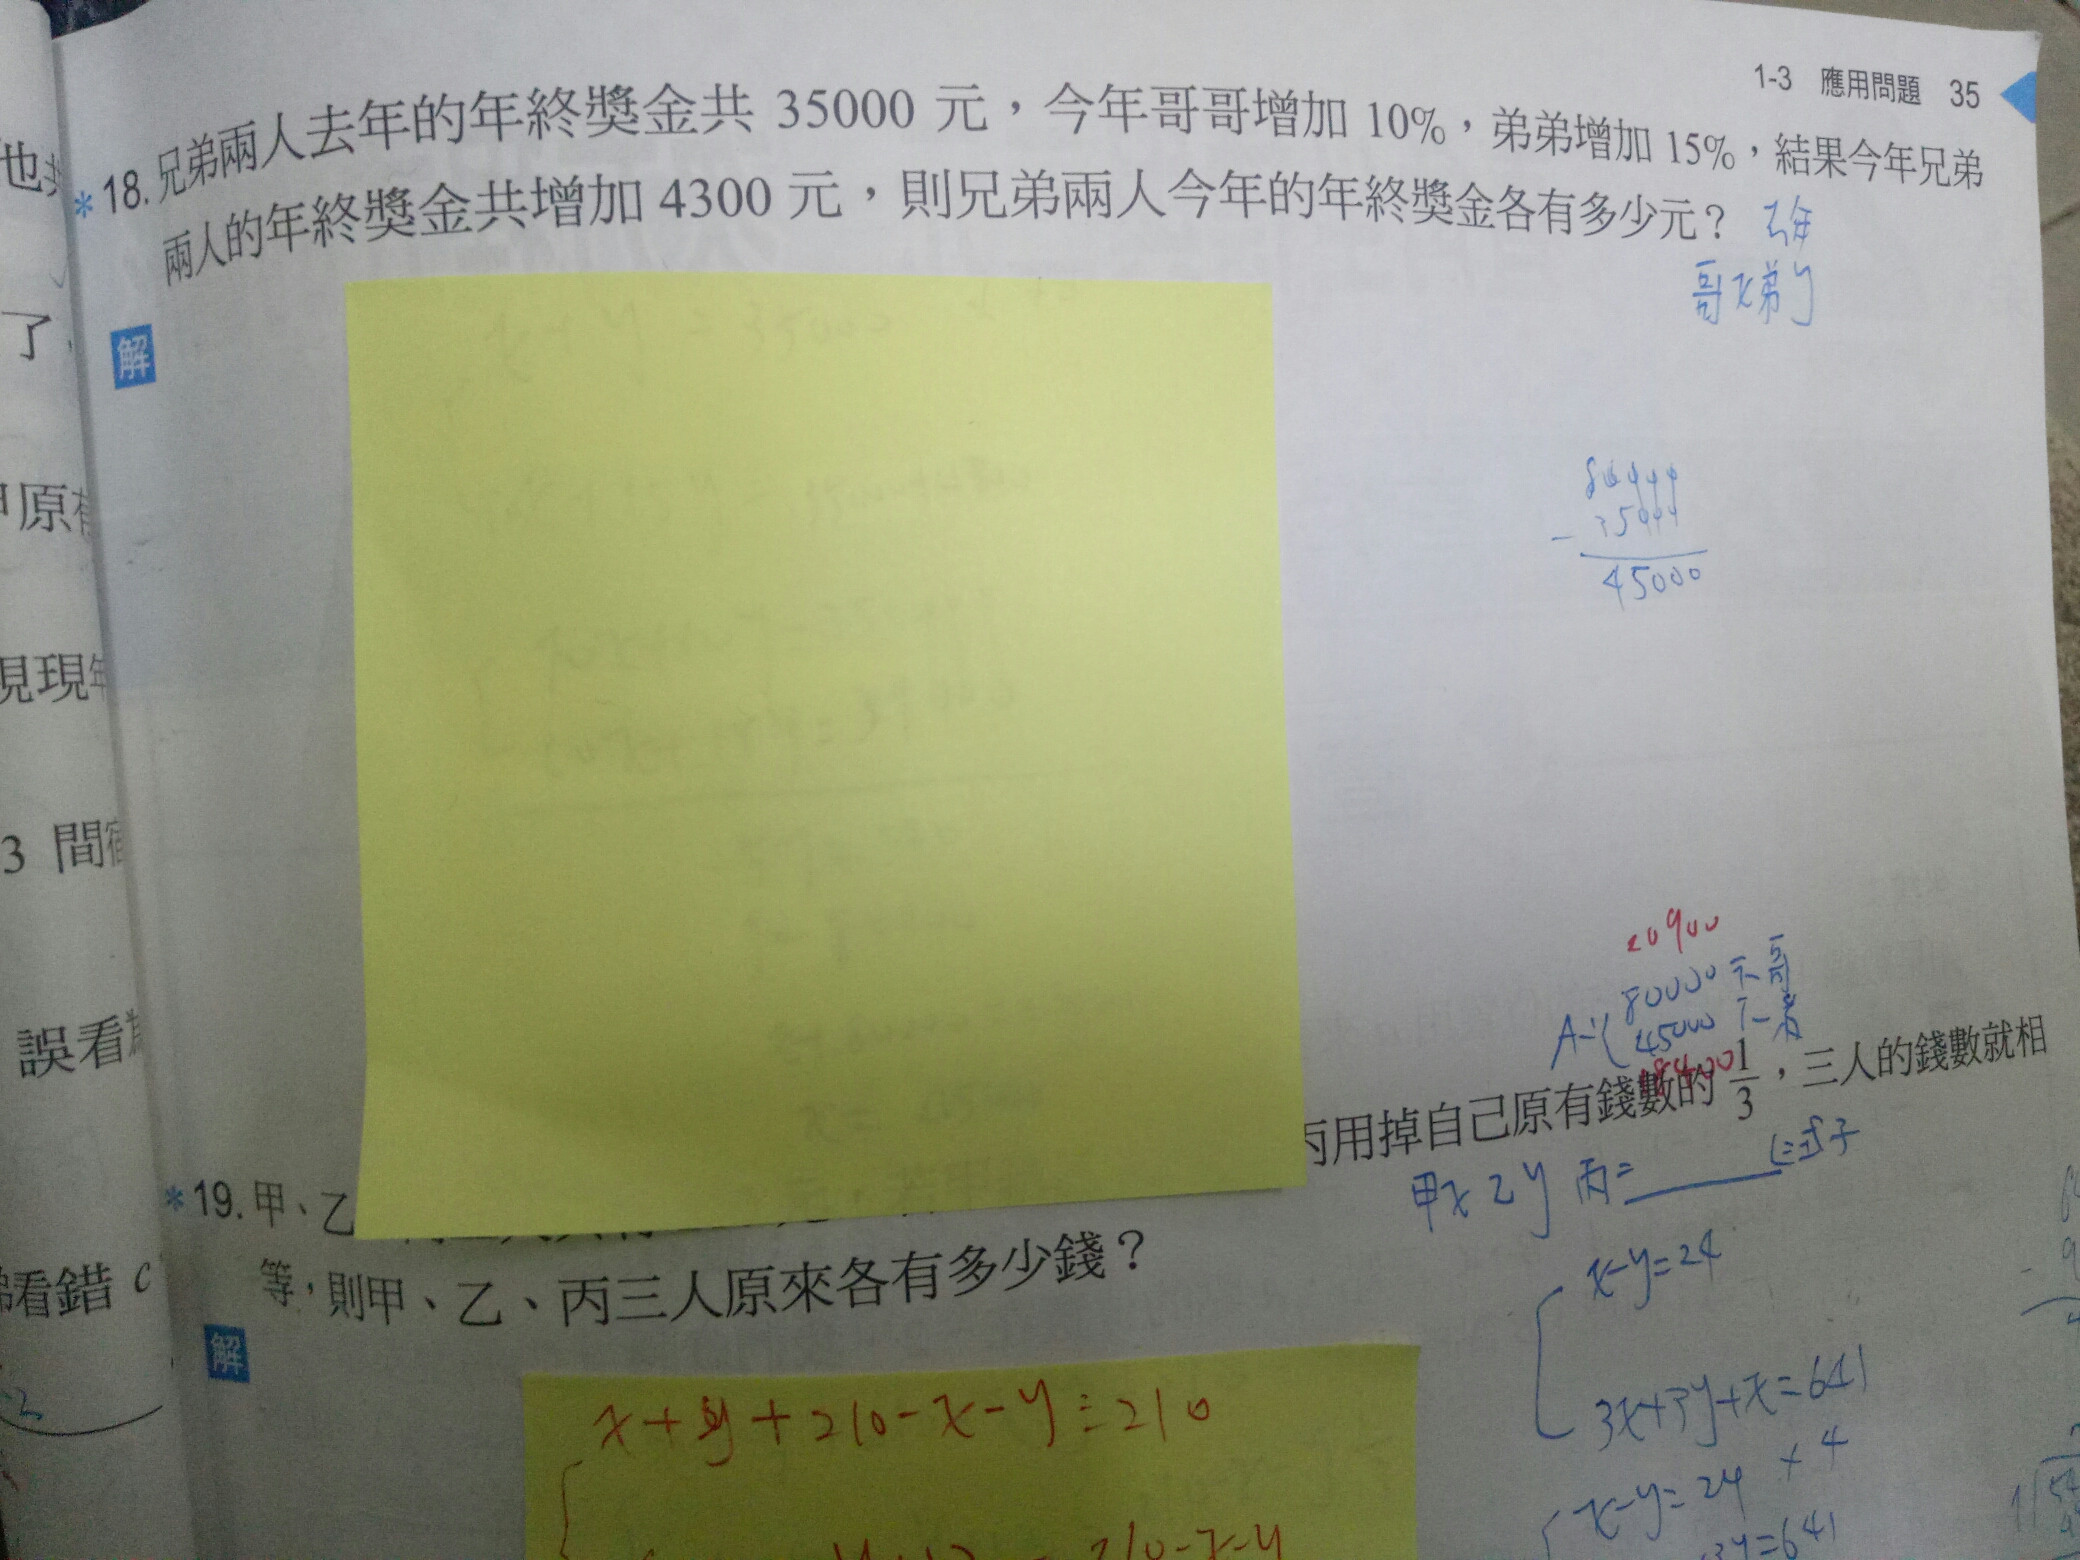 1-3 應用問題 35
*18. 兄弟兩人去年的年終獎金共 35000 元，今年哥哥增加 10%，弟弟增加 15%，結果今年兄弟
兩人的年終獎金共增加 4300 元，則兄弟兩人今年的年終獎金各有多少元？
哥x弟y
解
- 35000
45000
20900
80000
45000
丙用掉自己原有錢數的 1/3，三人的錢數就相
*19. 甲、乙
等，則甲、乙、丙三人原來各有多少錢？
甲x 乙y 丙=
解
x-y=24
3x+3y+x=641
x+y+210-x-y=210
x-y=24
3y=641
210-x-y
也
了，
原有
現現年
3 間宿
誤看為
看錯 c